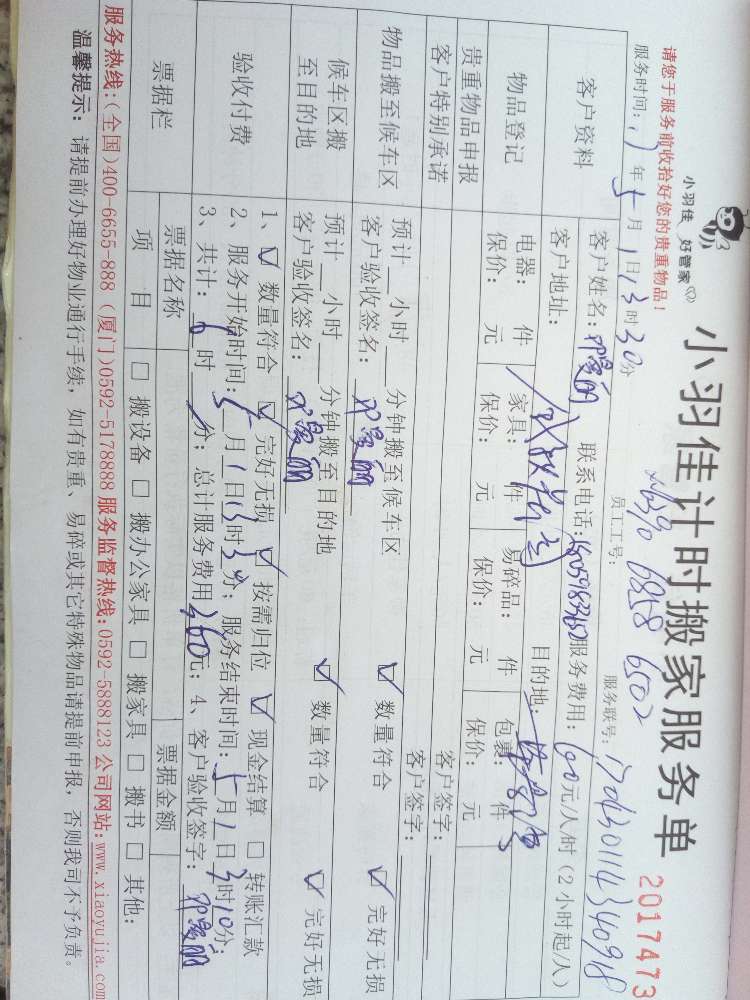 小羽佳 好管家
小羽佳计时搬家服务单 2017473
请您于服务前收拾好您的贵重物品!
员工工号: 服务联号:
服务时间: 17年5月1日13时30分
客户资料
客户姓名: 联系电话: 服务费用: 60元/人/时(2小时起/人)
客户地址: 目的地:
物品登记
电器: 件 家具: 件 易碎品: 件 包裹: 件
保价: 元 保价: 元 保价: 元 保价: 元
贵重物品申报 客户签字:
客户特别承诺 客户签字:
物品搬至候车区
预计__小时__分钟搬至候车区
客户验收签名: ☑ 数量符合 ☑ 完好无损
候车区搬至目的地
预计__小时__分钟搬至目的地
客户验收签名: ☑ 数量符合 ☑ 完好无损
验收付费
1、☑ 数量符合 ☑ 完好无损 ☑ 按需归位 ☑ 现金结算 □ 转账汇款
2、服务开始时间: 5月1日13时3分; 服务结束时间: 5月1日 时10分;
3、共计: 6时 分; 总计服务费用360元; 4、客户验收签字:
票据栏
票据名称 票据金额
项 目 □ 搬设备 □ 搬办公家具 □ 搬家具 □ 搬书 □ 其他:
服务热线:(全国)400-6655-888 (厦门)0592-5178888 服务监督热线:0592-5888123 公司网站:www.xiaoyujia.com
温馨提示: 请提前办理好物业通行手续, 如有贵重、易碎或其它特殊物品请提前申报, 否则我司不予负责。